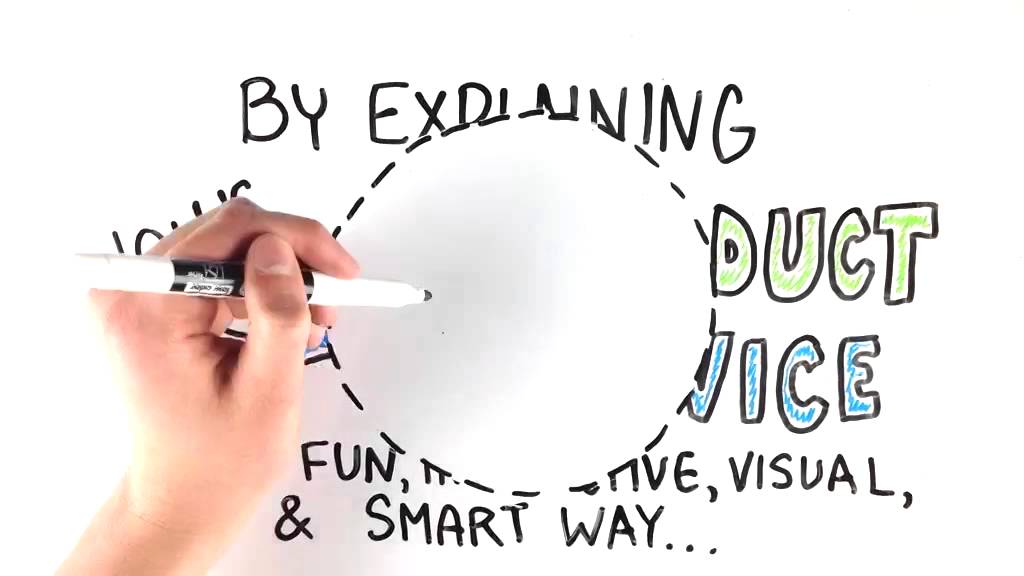 BY EXPLAINING
DUCT
VICE
FUN, VE, VISUAL,
& SMART WAY...